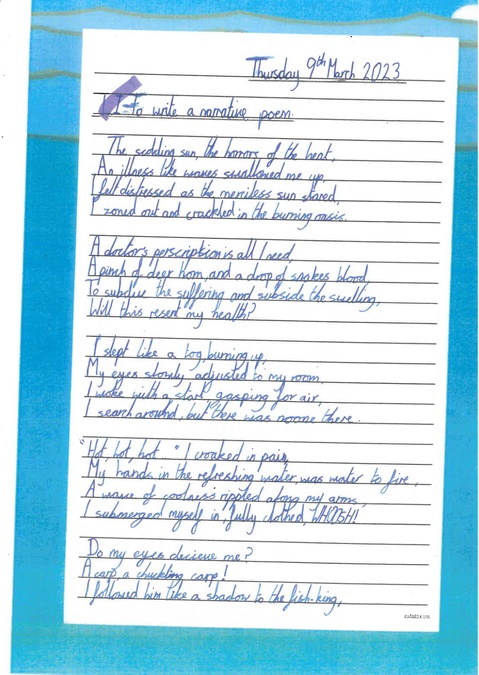 Thursday 9th March 2023
LI-To write a narrative poem.
The sidding sun, the horrors of the heat,
An illness like waves swallowed me up,
I fell distressed as the merciless sun stared,
I zoned out and crackled in the burning oasis.
A doctor's perscription is all I need,
A pinch of deer horn, and a drop of snakes blood
To subdue the suffering and subside the swelling,
Will this resent my health?
I slept like a log, burning up,
My eyes slowly adjusted to my room,
I woke with a start, gasping for air,
I search around, but there was noone there.
"Hot, hot, hot " I croaked in pain,
My hands, in the refreshing water, was water to fire,
A wave of coolness rippled along my arms,
I submerged myself in, fully clothed, WHOOSH!
Do my eyes decieve me?
A carp, a chuckling carp!
I followed him like a shadow to the fish-king,